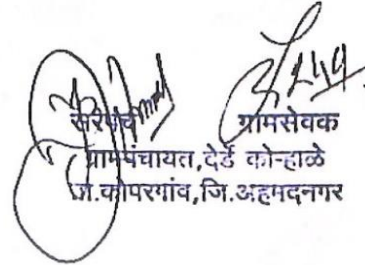 सरपंच ग्रामसेवक
ग्रामपंचायत,देर्डे कोऱ्हाळे
ता.कोपरगांव,जि.अहमदनगर